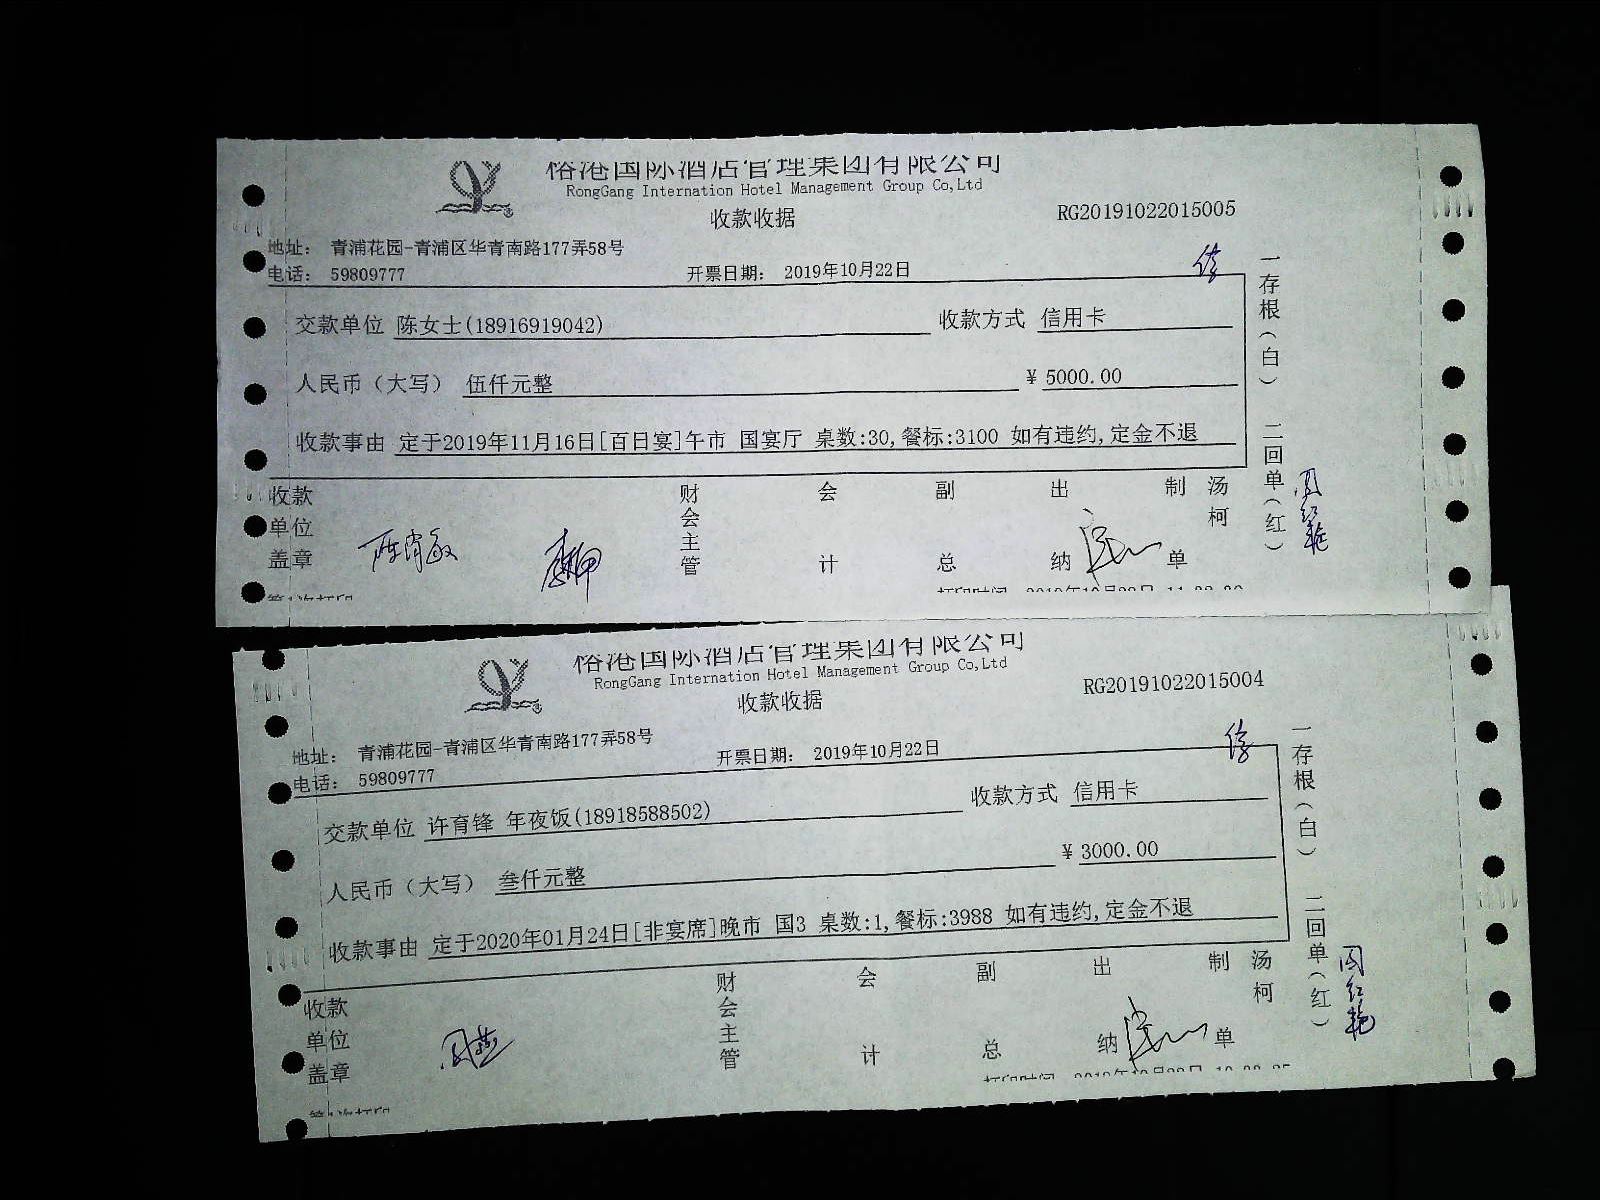 裕港国际酒店管理集团有限公司
RongGang Internation Hotel Management Group Co,Ltd
收款收据
RG20191022015005
地址： 青浦花园-青浦区华青南路177弄58号
电话： 59809777
开票日期： 2019年10月22日
交款单位 陈女士(18916919042) 收款方式 信用卡
人民币（大写） 伍仟元整 ¥ 5000.00
收款事由 定于2019年11月16日[百日宴]午市 国宴厅 桌数:30,餐标:3100 如有违约,定金不退
一存根（白） 二回单（红）
收款单位盖章 财会主管 会计 副总 出纳 制单 汤柯
第1次打印
裕港国际酒店管理集团有限公司
RongGang Internation Hotel Management Group Co,Ltd
收款收据
RG20191022015004
地址： 青浦花园-青浦区华青南路177弄58号
电话： 59809777
开票日期： 2019年10月22日
交款单位 许育锋 年夜饭(18918588502) 收款方式 信用卡
人民币（大写） 叁仟元整 ¥ 3000.00
收款事由 定于2020年01月24日[非宴席]晚市 国3 桌数:1,餐标:3988 如有违约,定金不退
一存根（白） 二回单（红）
收款单位盖章 财会主管 会计 副总 出纳 制单 汤柯